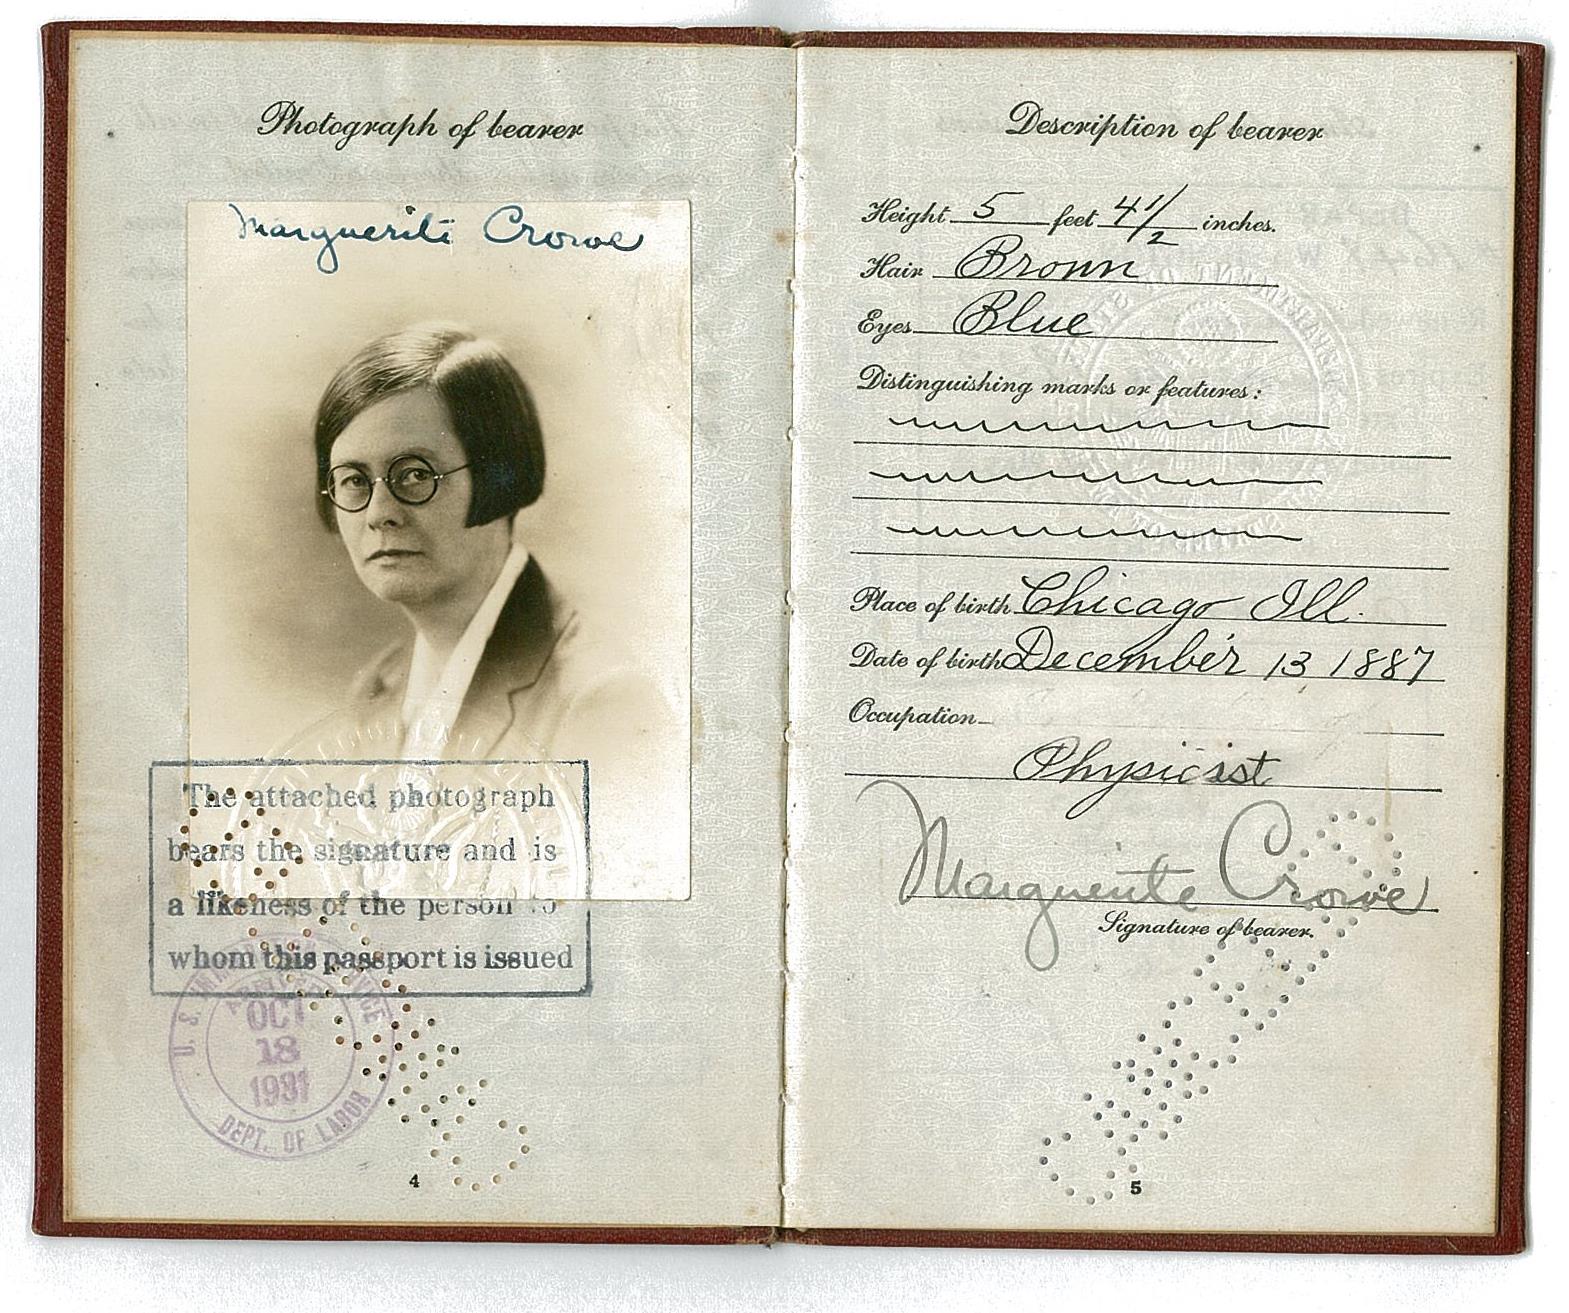 Photograph of bearer
Marguerite Crowe
The attached photograph
bears the signature and is
a likeness of the person to
whom this passport is issued
U. S. IMMIGRATION SERVICE
ADMITTED
OCT
18
1931
DEPT. OF LABOR
4
Description of bearer
Height 5 feet 4 1/2 inches.
Hair Brown
Eyes Blue
Distinguishing marks or features:
Place of birth Chicago Ill.
Date of birth December 13 1887
Occupation
Physicist
Marguerite Crowe
Signature of bearer.
5